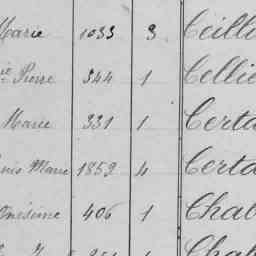 Marie 1033 3 Ceill
ie Pierre 344 1 Cellie
Marie 331 1 Certa
ouis Marie 1859 4 Certa
Onésime 406 1 Chab
1 Chab